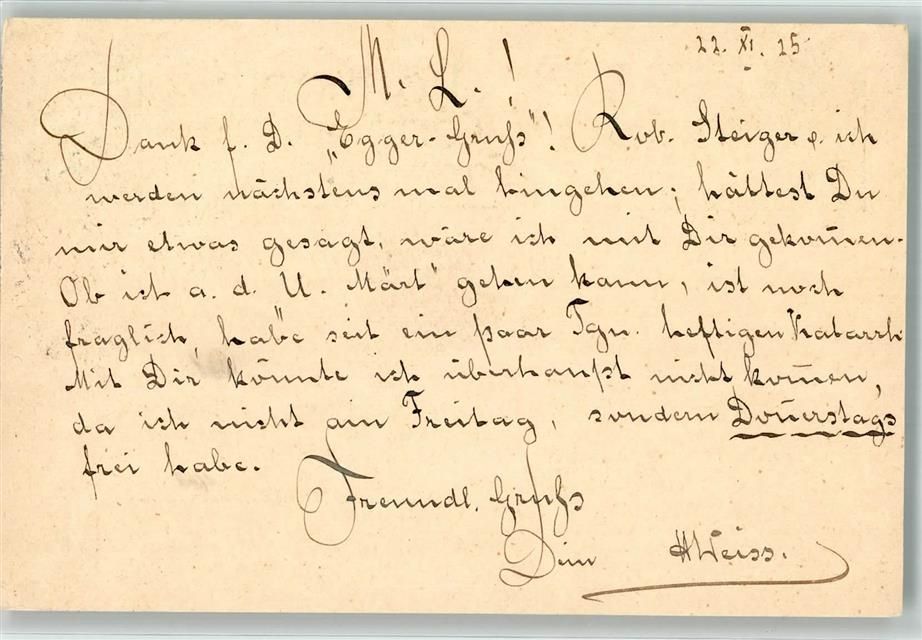 22. XI. 25
M. L.!
Dank f. D. „Egger-Gruſs"! Rob. Steiger & ich
werden nächstens mal hingehen; hättest Du
mir etwas gesagt, wäre ich mit Dir gekom̄en.
Ob ich a. d. U. Märt" gehen kann, ist noch
fraglich, habe seit ein paar Tgn. heftigen Katarrh
Mit Dir könnte ich überhaupt nicht kom̄en,
da ich nicht am Freitag, sondern Don̄erstags
frei habe.
Freundl. Gruſs
Dein HWeiss.